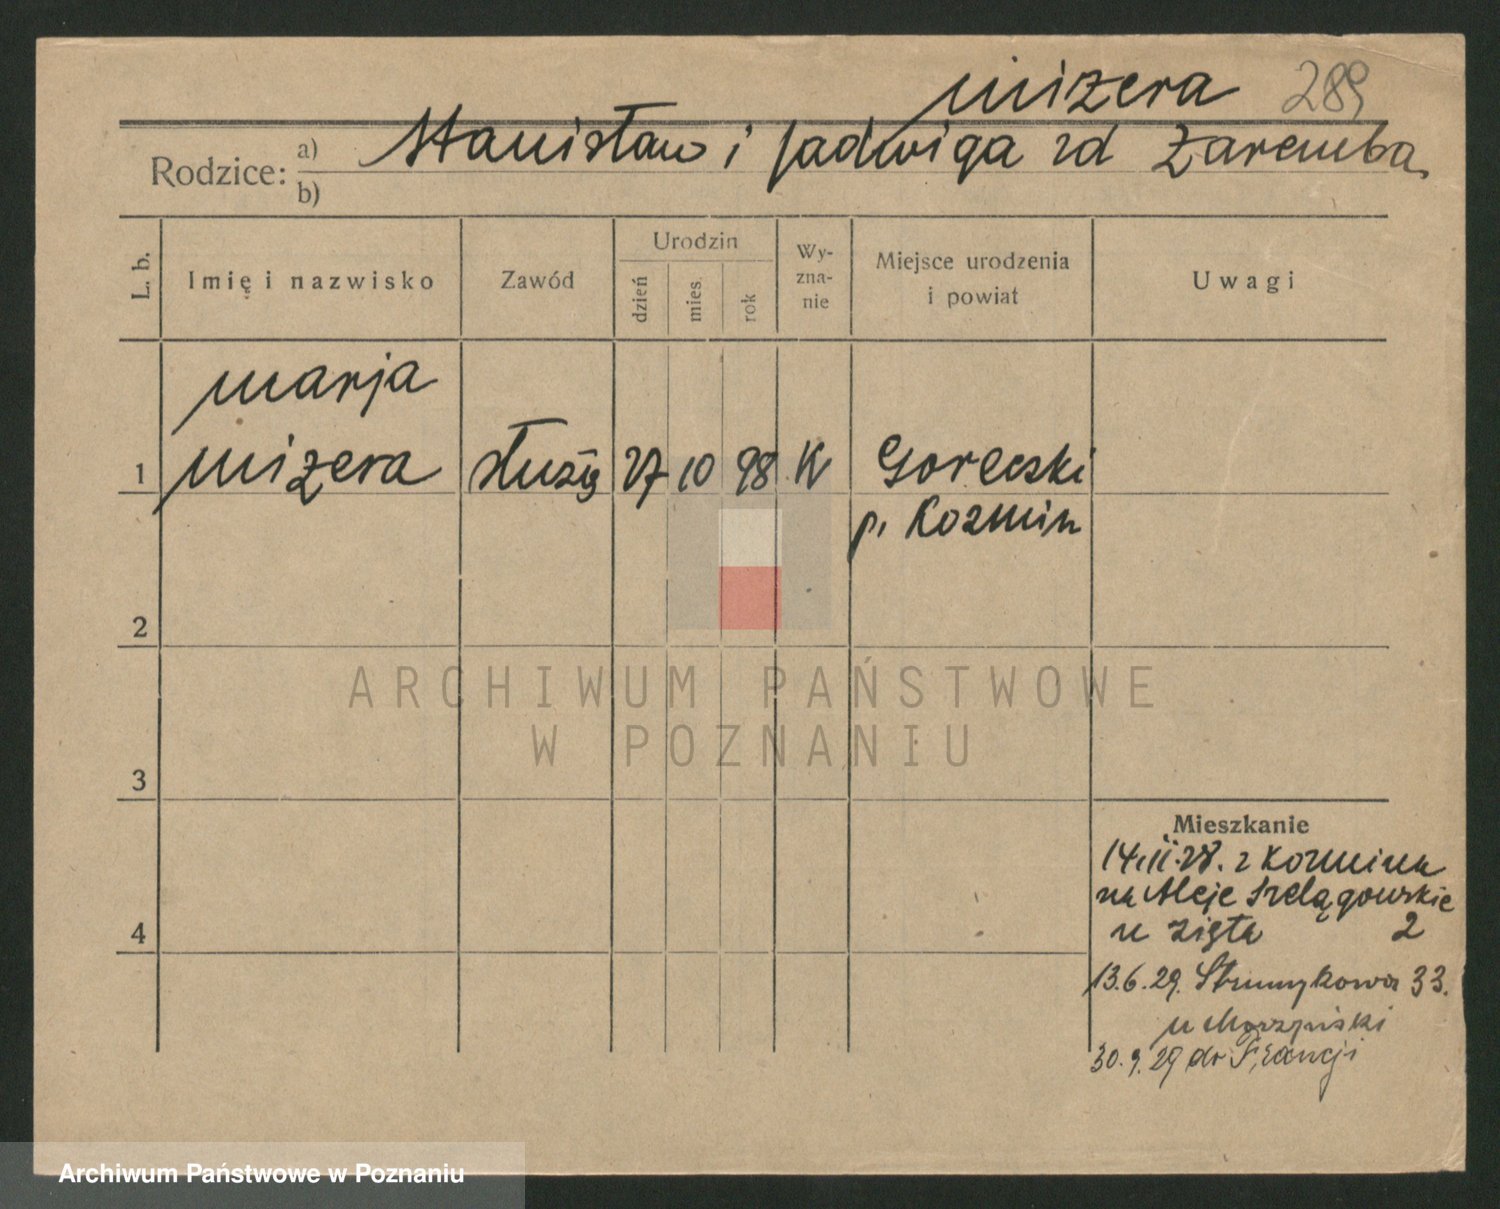 Mizera 289
Rodzice: a) Stanisław i Jadwiga zd Zaremba
b)
L. b.
Imię i nazwisko
Zawód
Urodzin
dzień
mies.
rok
Wy-
zna-
nie
Miejsce urodzenia
i powiat
Uwagi
Marja
1 Mizera służą 27 10 98 K Goreczki
p. Kozmin
2
3
4
Mieszkanie
14.11.28. z Kozmina
na Aleje Szelągowskie
u Zigta 2
13.6.29. Strumykowa 33.
u
30.9.29 do Francji
ARCHIWUM PAŃSTWOWE
W POZNANIU
Archiwum Państwowe w Poznaniu